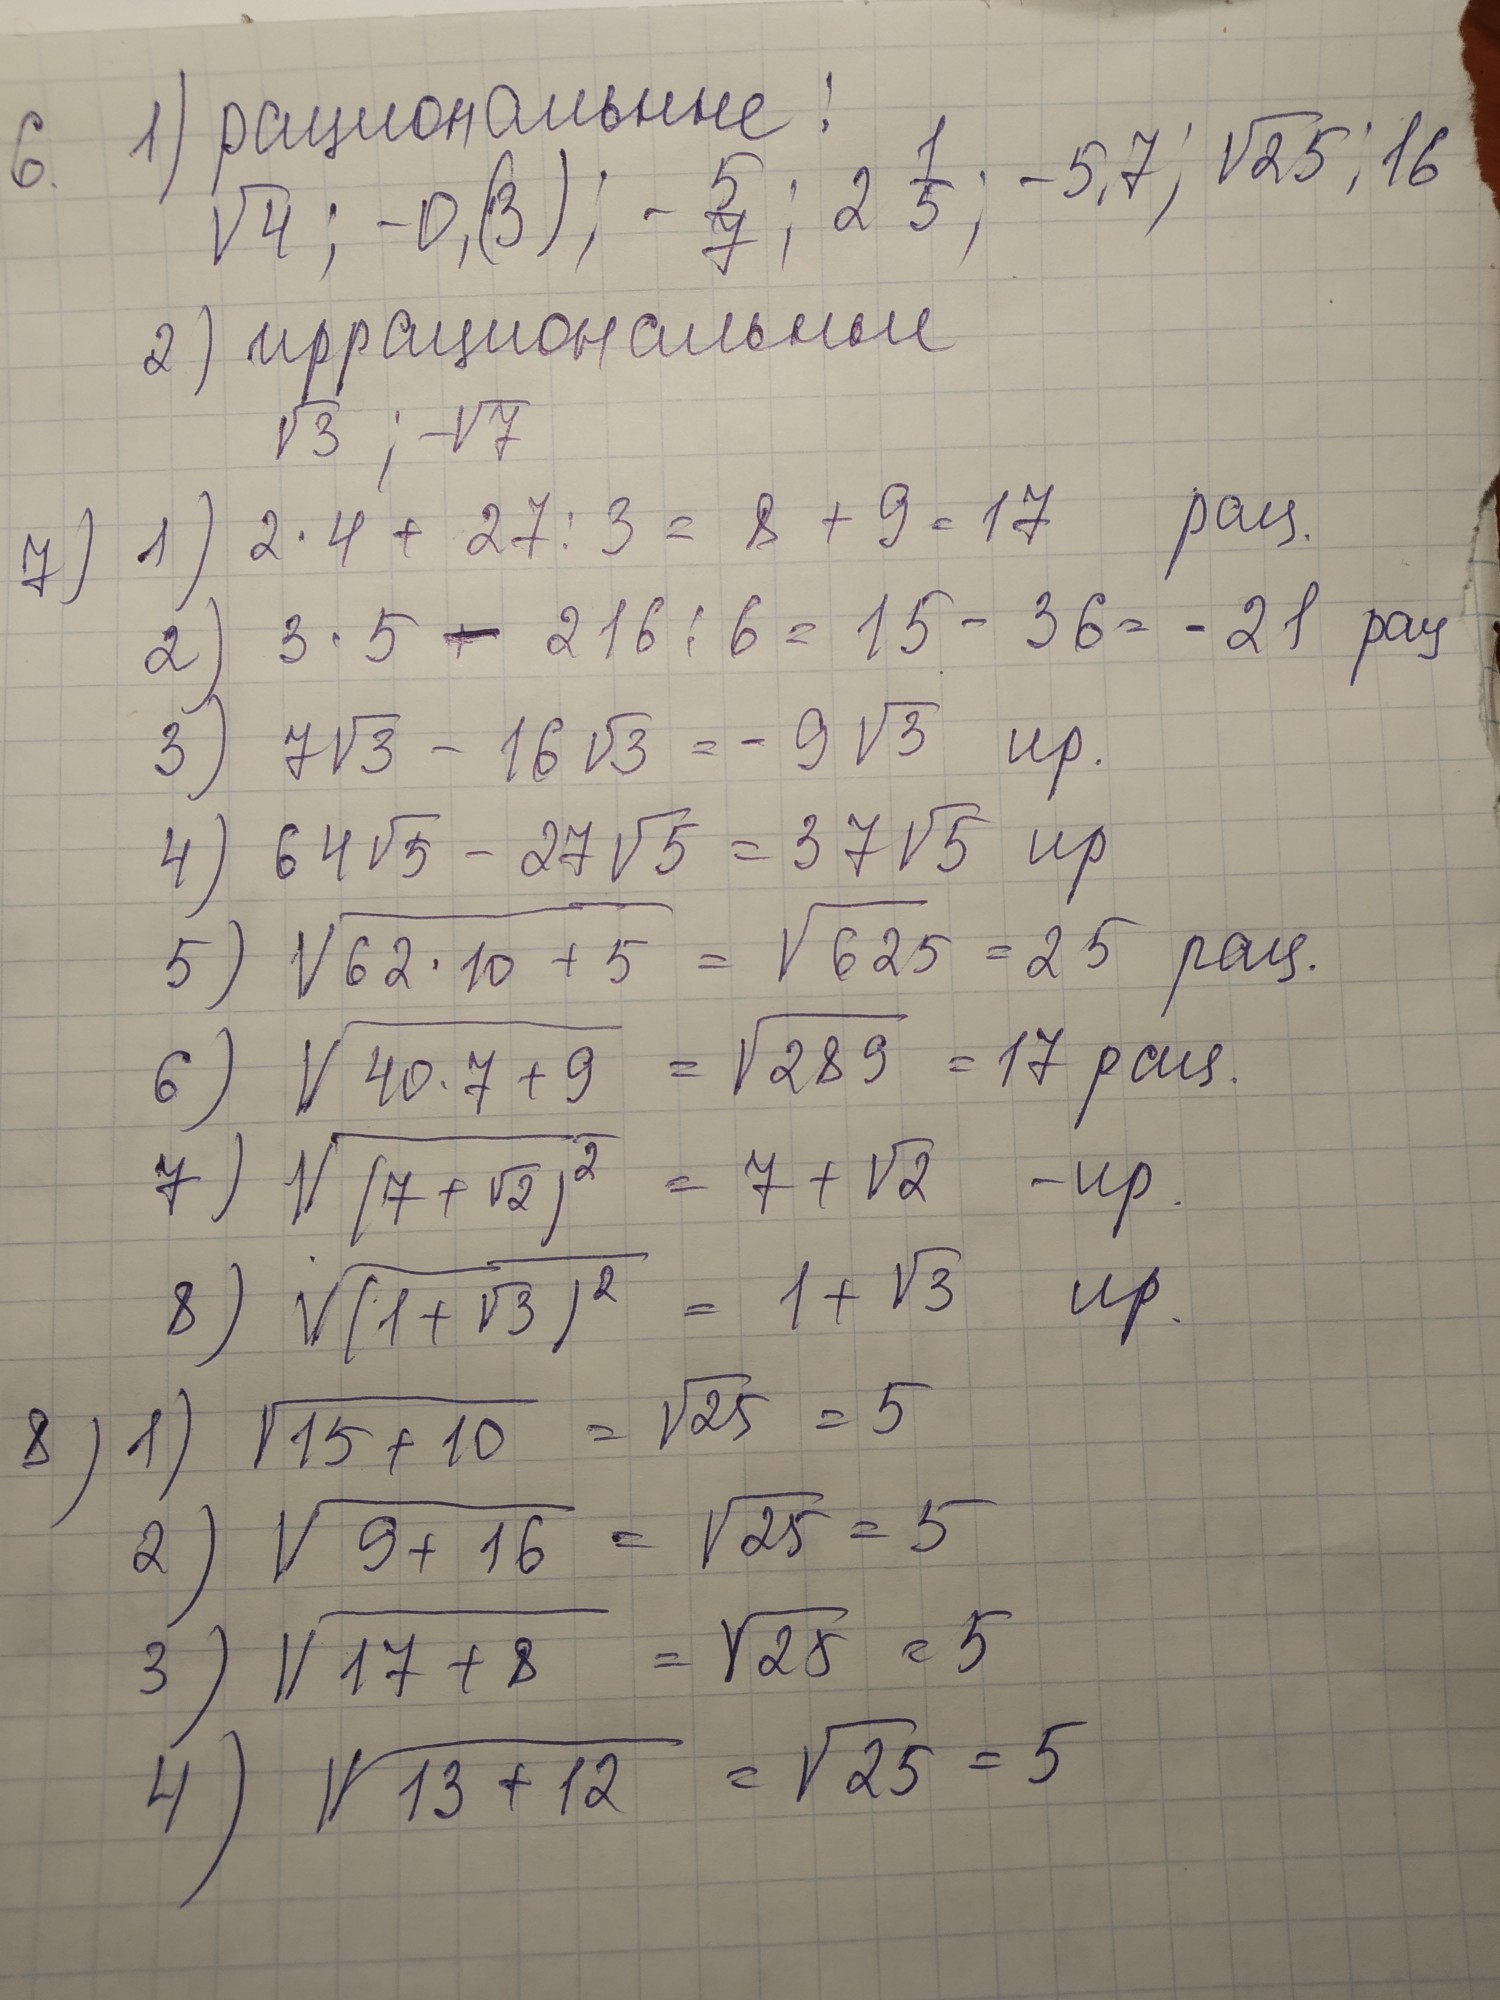 6. 1) рациональные:
√4; -0,(3); -5/7; 2 1/5; -5,7; √25; 16
2) иррациональные
√3; -√7
7) 1) 2·4 + 27:3 = 8 + 9 = 17 рац.
2) 3·5 - 216:6 = 15 - 36 = -21 рац
3) 7√3 - 16√3 = -9√3 ир.
4) 64√5 - 27√5 = 37√5 ир
5) √(62·10 + 5) = √625 = 25 рац.
6) √(40·7 + 9) = √289 = 17 рац.
7) √(7 + √2)² = 7 + √2 - ир.
8) √(1 + √3)² = 1 + √3 ир.
8) 1) √(15 + 10) = √25 = 5
2) √(9 + 16) = √25 = 5
3) √(17 + 8) = √25 = 5
4) √(13 + 12) = √25 = 5